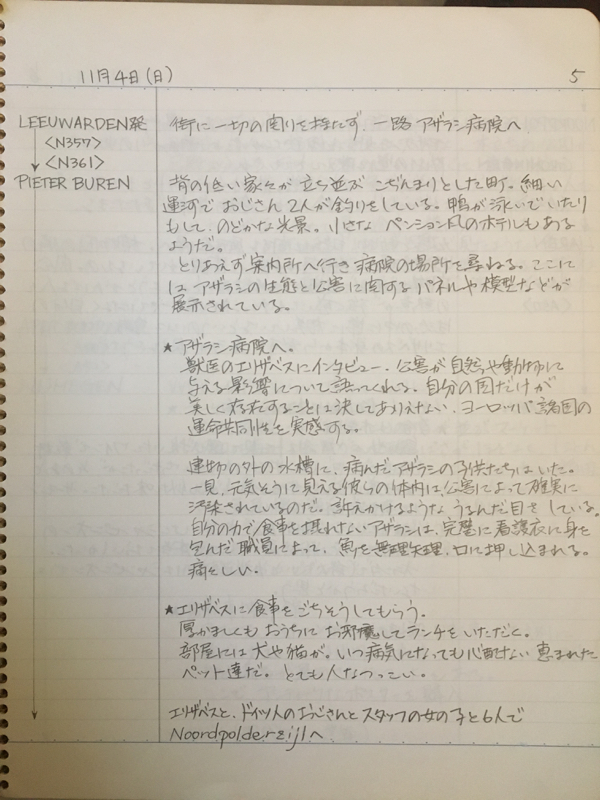 11月4日(日)
5
LEEUWARDEN発
<N357>
<N361>
PIETER BUREN
街に一切の関りを持たず、一路 アザラシ病院へ
背の低い家々が 立ち並ぶ こぢんまりとした町。細い
運河で おじさん 2人が釣りをしている。鴨が泳いでいたり
もして、のどかな光景。小さな ペンション風のホテルもある
ようだ。
とりあえず案内所へ行き 病院の場所を尋ねる。ここに
は アザラシの生態と公害に関する パネルや模型などが
展示されている。
★アザラシ病院へ。
獣医のエリザベスにインタビュー。公害が 自然や動物に
与える影響について語ってくれる。自分の国だけが
美しく存在することは決してありえない。ヨーロッパ諸国の
運命共同性を実感する。
建物の外の水槽に、病んだアザラシの子供たちはいた。
一見、元気そうに見える彼らの体内は、公害によって確実に
汚染されているのだ。訴えかけるような うるんだ目をしている。
自分の力で食事を摂れないアザラシは、完璧に看護衣に身を
包んだ職員によって、魚を無理矢理、口に押し込まれる。
痛々しい。
★エリザベスに食事をごちそうしてもらう。
厚かましくも おうちに お邪魔してランチをいただく。
部屋には 犬や猫が。いつ病気になっても心配ない 恵まれた
ペット達だ。とても人なつっこい。
エリザベスと、ドイツ人のおじさんとスタッフの女の子と6人で
Noordpolderzijlへ